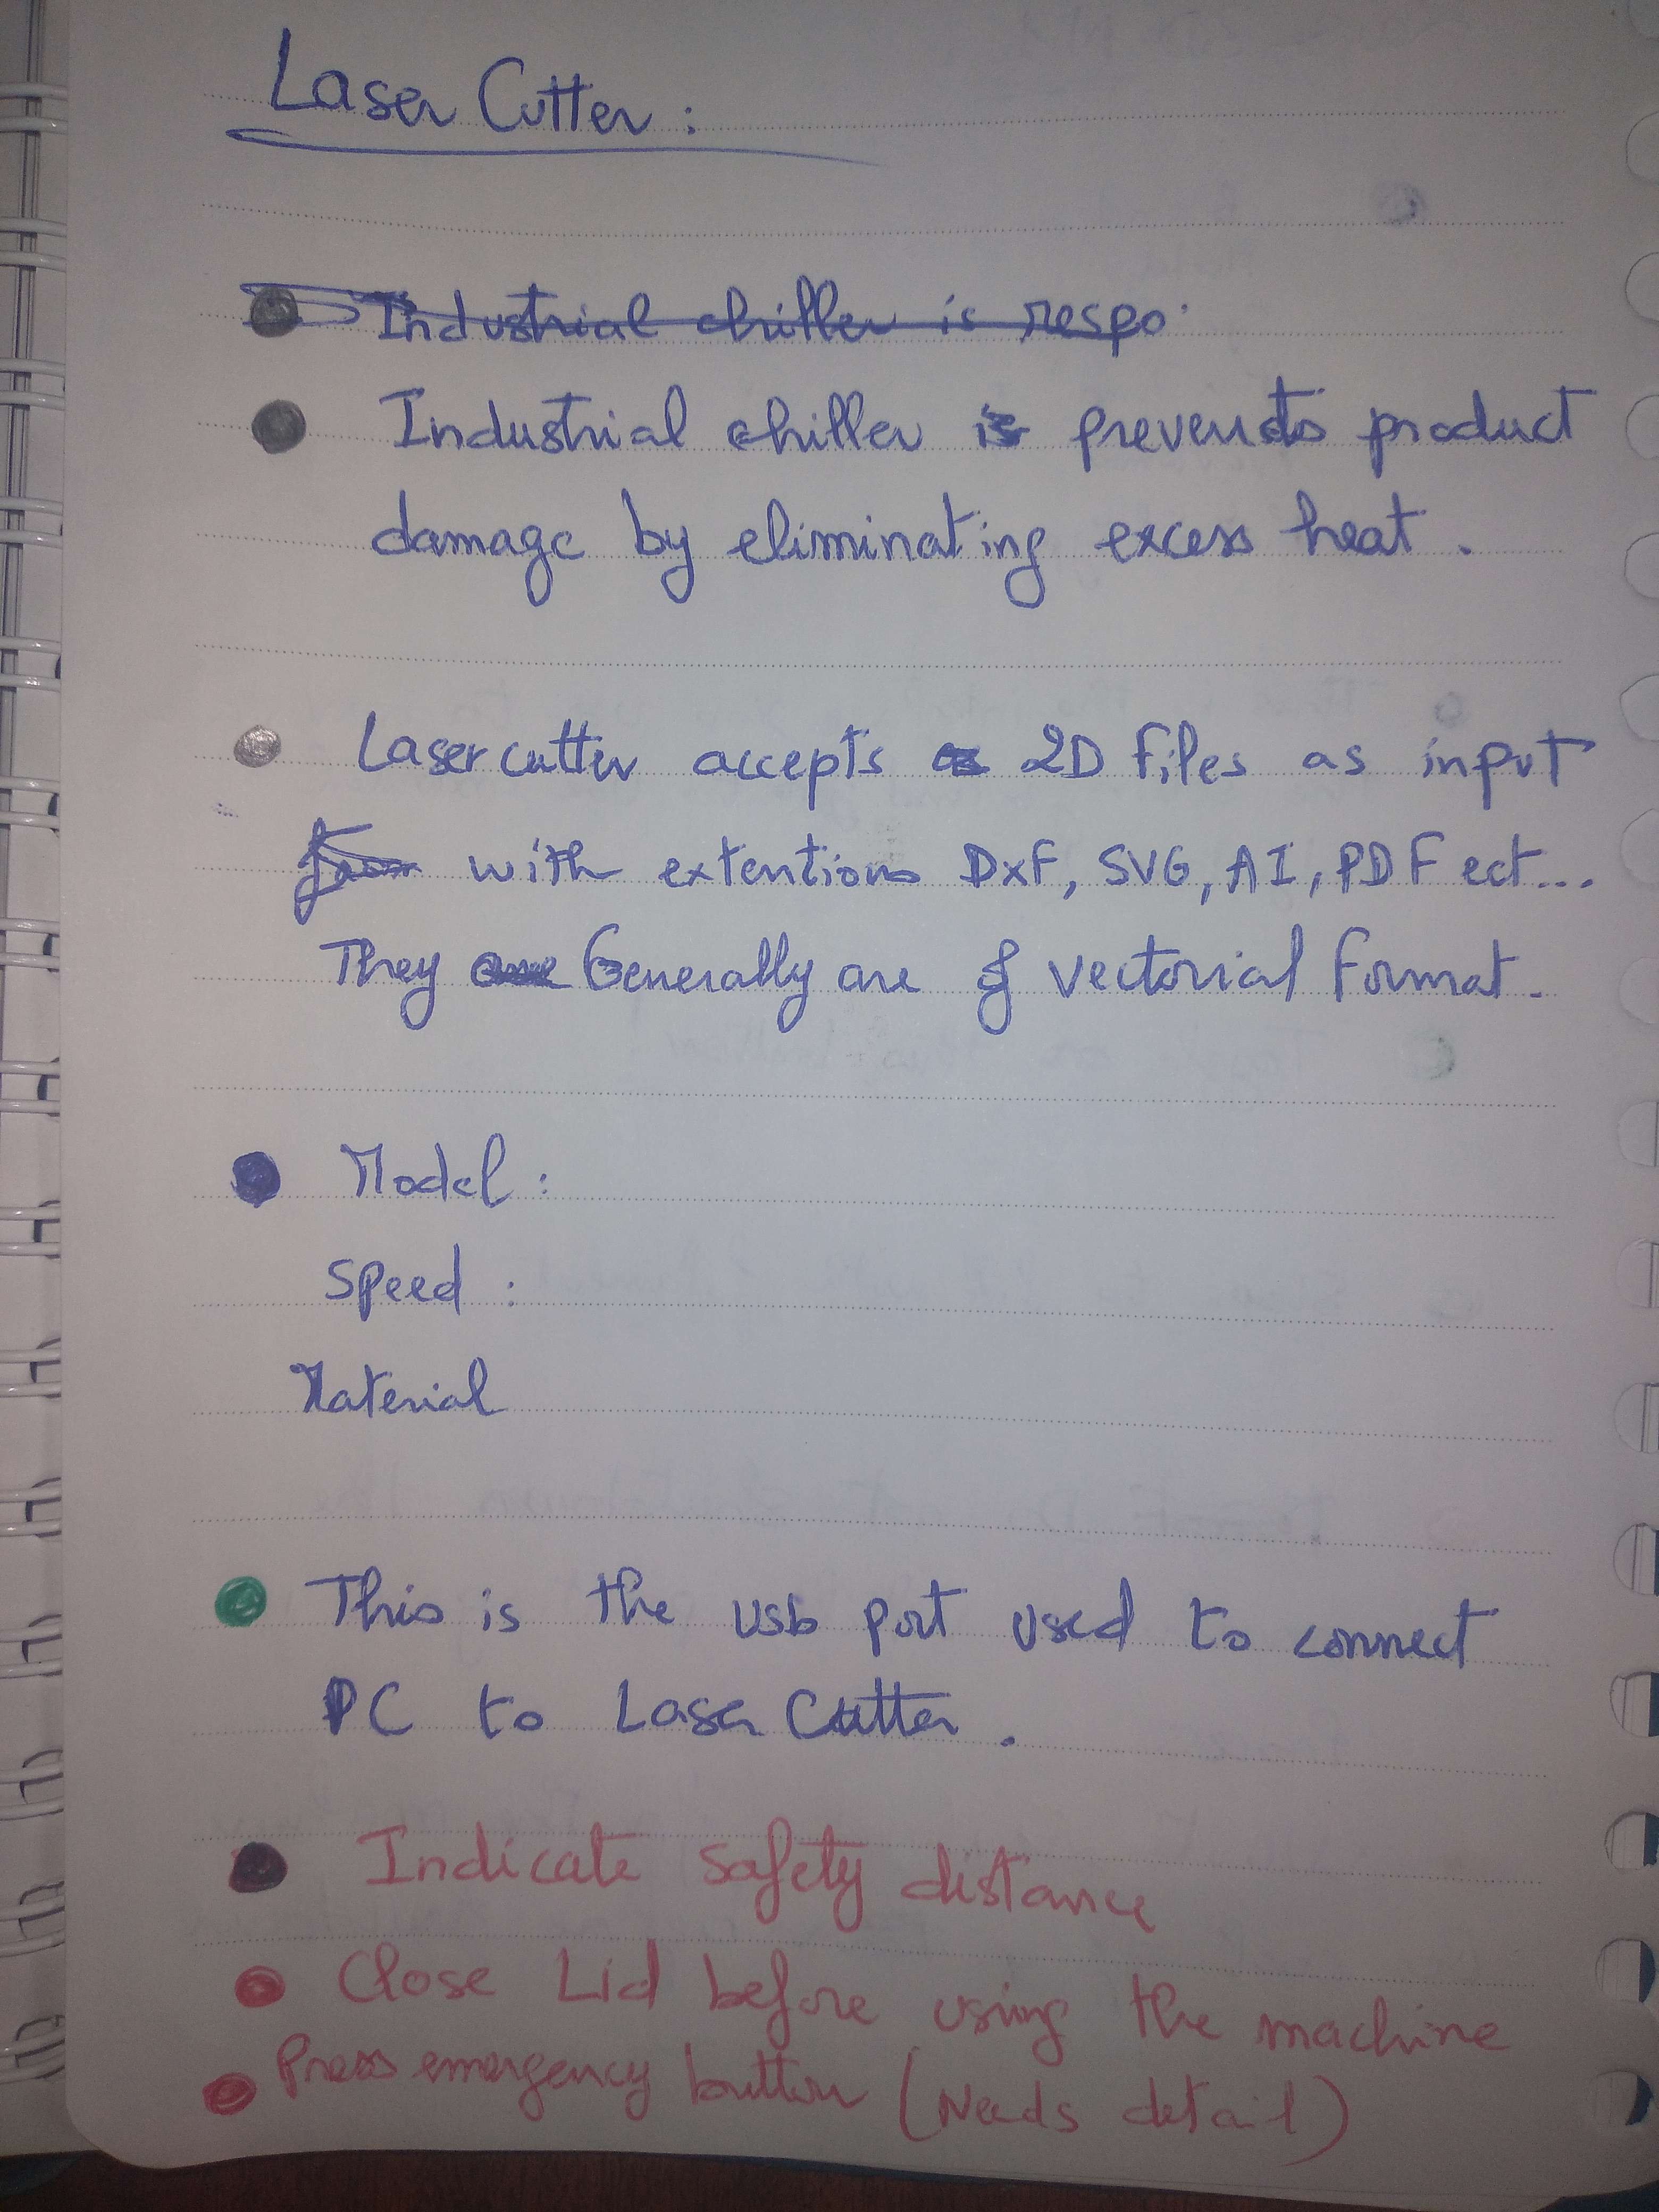 Laser Cutter :
Industrial chiller is respo
Industrial chiller prevents product
damage by eliminating excess heat .
Laser cutter accepts 2D files as input
with extentions DXF, SVG, AI, PDF ect...
They Generally are of vectorial format .
Model :
Speed :
Material
This is the usb port used to connect
PC to Laser Cutter .
Indicate safety distance
Close Lid before using the machine
Press emergency button (Needs detail)